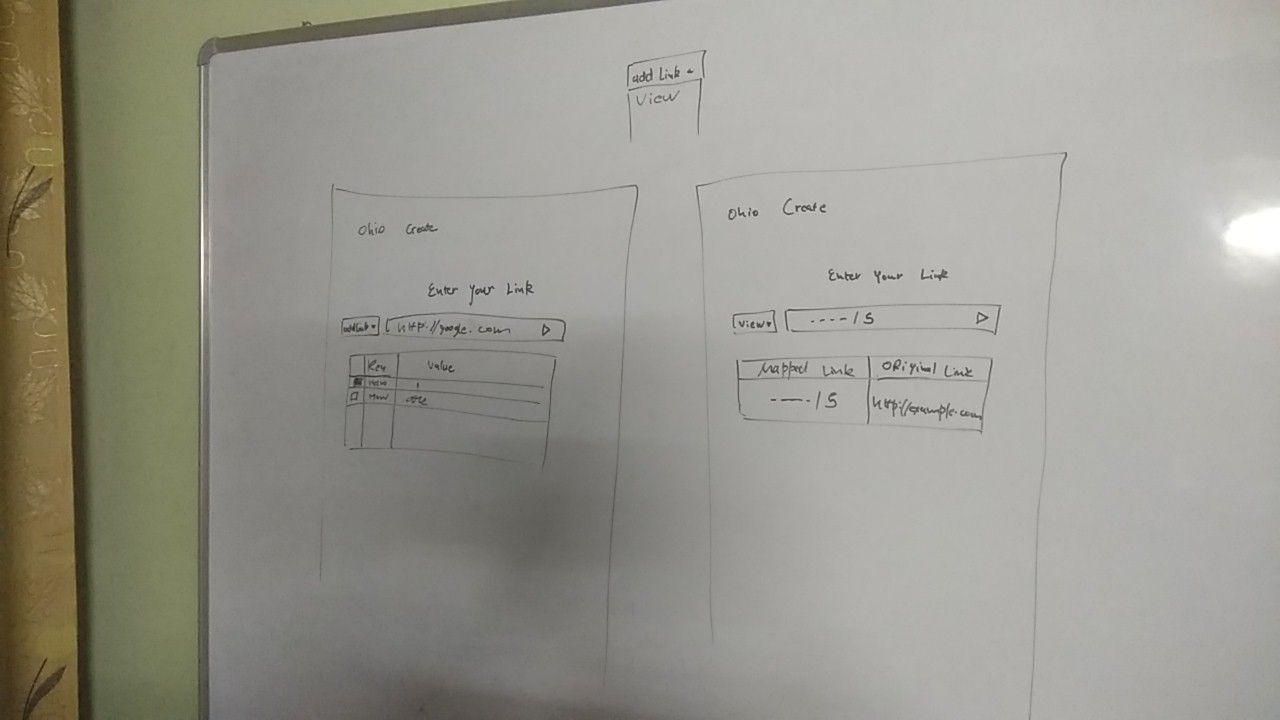 add Link
View
Ohio Create
Enter Your Link
add Link
http://google.com
Key Value
Ohio Create
Enter Your Link
View
----/5
Mapped Link Original Link
----/5 http://example.com